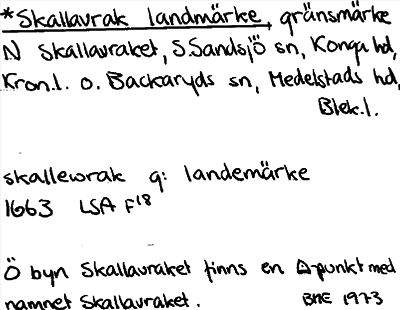 *Skallavrak landmärke, gränsmärke
N Skallavraket, S.Sandsjö sn, Konga hd,
Kron.l. o. Backaryds sn, Medelstads hd,
Blek.l.
skallewrak q: landemärke
1663 LSA F18
Ö byn Skallavraket finns en Δpunkt med
namnet Skallavraket.
BME 1973